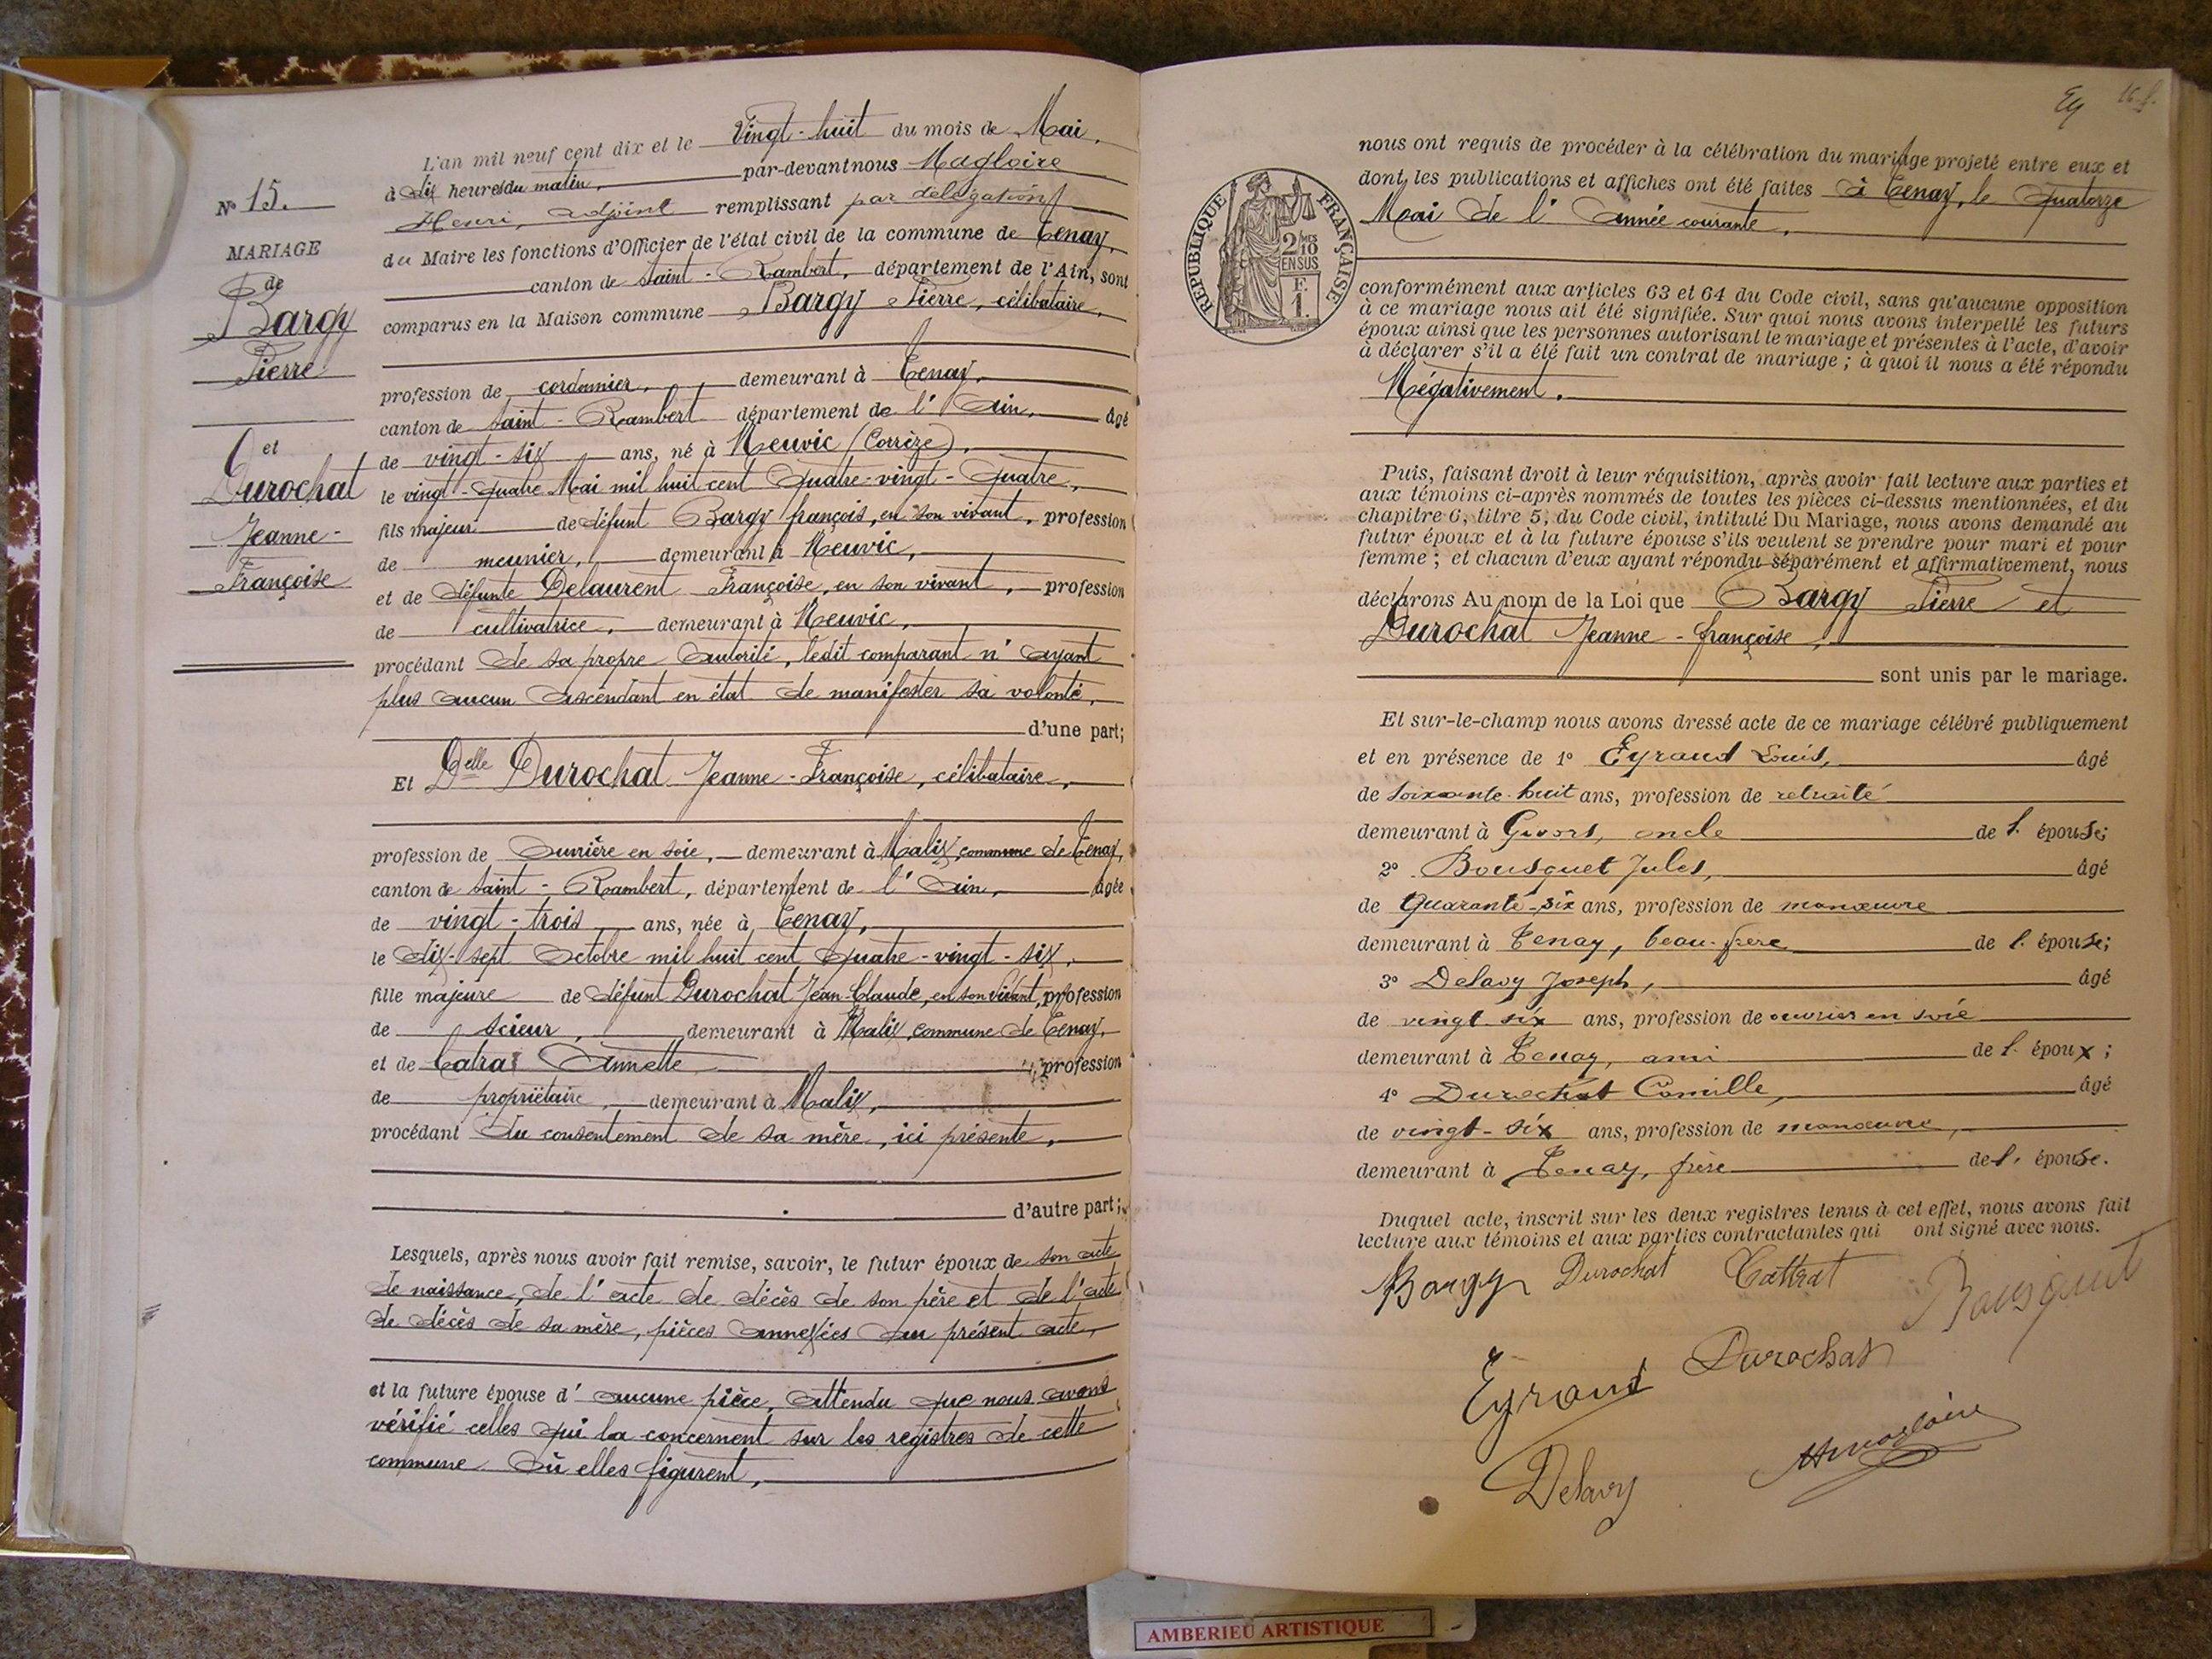 L'an mil neuf cent dix et le Vingt-huit du mois de Mai,
à dix heures du matin, par-devant nous Magloire
Henri, adjoint remplissant par délégation
du Maire les fonctions d'Officier de l'état civil de la commune de Tenay,
canton de Saint-Rambert, département de l'Ain, sont
comparus en la Maison commune Bargy Pierre, célibataire,
profession de cordonnier, demeurant à Tenay,
canton de Saint-Rambert département de l'Ain, âgé
de vingt-six ans, né à Neuvic (Corrèze),
le vingt-quatre Mai mil huit cent quatre-vingt-quatre,
fils majeur de défunt Bargy françois, en son vivant, profession
de meunier, demeurant à Neuvic,
et de défunte Delaurent Françoise, en son vivant, profession
de cultivatrice, demeurant à Neuvic,
procédant de sa propre autorité, ledit comparant n'ayant
plus aucun ascendant en état de manifester sa volonté,
d'une part;
Et Delle Durochat Jeanne-Françoise, célibataire,
profession de Ouvrière en soie, demeurant à Malix, commune de Tenay,
canton de Saint-Rambert, département de l'Ain, âgée
de vingt-trois ans, née à Tenay,
le dix-sept Octobre mil huit cent quatre-vingt-six,
fille majeure de défunt Durochat Jean-Claude, en son vivant, profession
de scieur, demeurant à Malix, commune de Tenay,
et de Annette profession
de propriétaire, demeurant à Malix,
procédant du consentement de sa mère, ici présente,
d'autre part;
Lesquels, après nous avoir fait remise, savoir, le futur époux de son acte
de naissance, de l'acte de décès de son père et de l'acte
de décès de sa mère, pièces annexées au présent acte,
et la future épouse d'aucune pièce, attendu que nous avons
vérifié celles qui la concernent sur les registres de cette
commune où elles figurent,
Nº 15.
MARIAGE
de
Bargy
Pierre
et
Durochat
Jeanne-
Françoise
16 f.
nous ont requis de procéder à la célébration du mariage projeté entre eux et
dont les publications et affiches ont été faites à Tenay, le quatorze
Mai de l'année courante,
RÉPUBLIQUE FRANÇAISE
2/10MES
EN SUS
F.
1.
conformément aux articles 63 et 64 du Code civil, sans qu'aucune opposition
à ce mariage nous ait été signifiée. Sur quoi nous avons interpellé les futurs
époux ainsi que les personnes autorisant le mariage et présentes à l'acte, d'avoir
à déclarer s'il a été fait un contrat de mariage; à quoi il nous a été répondu
Négativement.
Puis, faisant droit à leur réquisition, après avoir fait lecture aux parties et
aux témoins ci-après nommés de toutes les pièces ci-dessus mentionnées, et du
chapitre 6, titre 5, du Code civil, intitulé Du Mariage, nous avons demandé au
futur époux et à la future épouse s'ils veulent se prendre pour mari et pour
femme; et chacun d'eux ayant répondu séparément et affirmativement, nous
déclarons Au nom de la Loi que Bargy Pierre et
Durochat Jeanne-françoise,
sont unis par le mariage.
Et sur-le-champ nous avons dressé acte de ce mariage célébré publiquement
et en présence de 1º Eyraud Louis, âgé
de soixante-huit ans, profession de retraité
demeurant à Givors, oncle de l'épouse;
2º Bousquet Jules, âgé
de Quarante-six ans, profession de manœuvre
demeurant à Tenay, beau-frère de l'épouse;
3º Delavy Joseph, âgé
de vingt six ans, profession de ouvrier en soie
demeurant à Tenay, ami de l'époux;
4º Durochat Camille, âgé
de vingt-six ans, profession de manœuvre,
demeurant à Tenay, frère de l'épouse.
Duquel acte, inscrit sur les deux registres tenus à cet effet, nous avons fait
lecture aux témoins et aux parties contractantes qui ont signé avec nous.
Bargy Durochat Cattrat Bousquet
Eyraud Durochat
Delavy HMagloire
AMBERIEU ARTISTIQUE